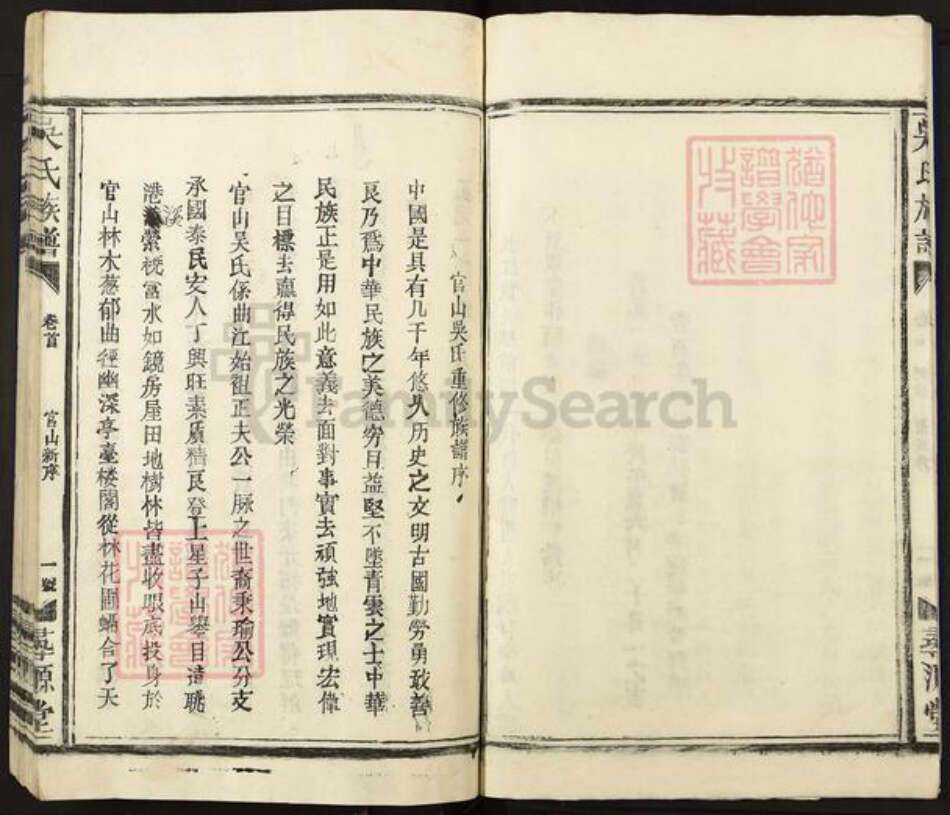 吳氏族譜
尋源堂
猶他家譜學會收藏
官山吳氏重修族譜序
中國是具有几千年悠久历史之文明古國勤勞勇敢善
良乃爲中華民族之美德穷且益堅不墜青雲之士中華
民族正是用如此意義去面對事實去頑強地實現宏偉
之目標去贏得民族之光榮
官山吳氏係曲江始祖正夫公一脉之世裔乘瑜公分支
承國泰民安人丁興旺素质精良登上星子山舉目遠眺
港溪縈桡富水如鏡房屋田地樹林皆盡收眼底投身於
官山林木葱郁曲徑幽深亭臺楼閣從林花圃蟠合了天
吳氏族譜
卷首
官山新序
一號
尋源堂
猶他家譜學會收藏
FamilySearch